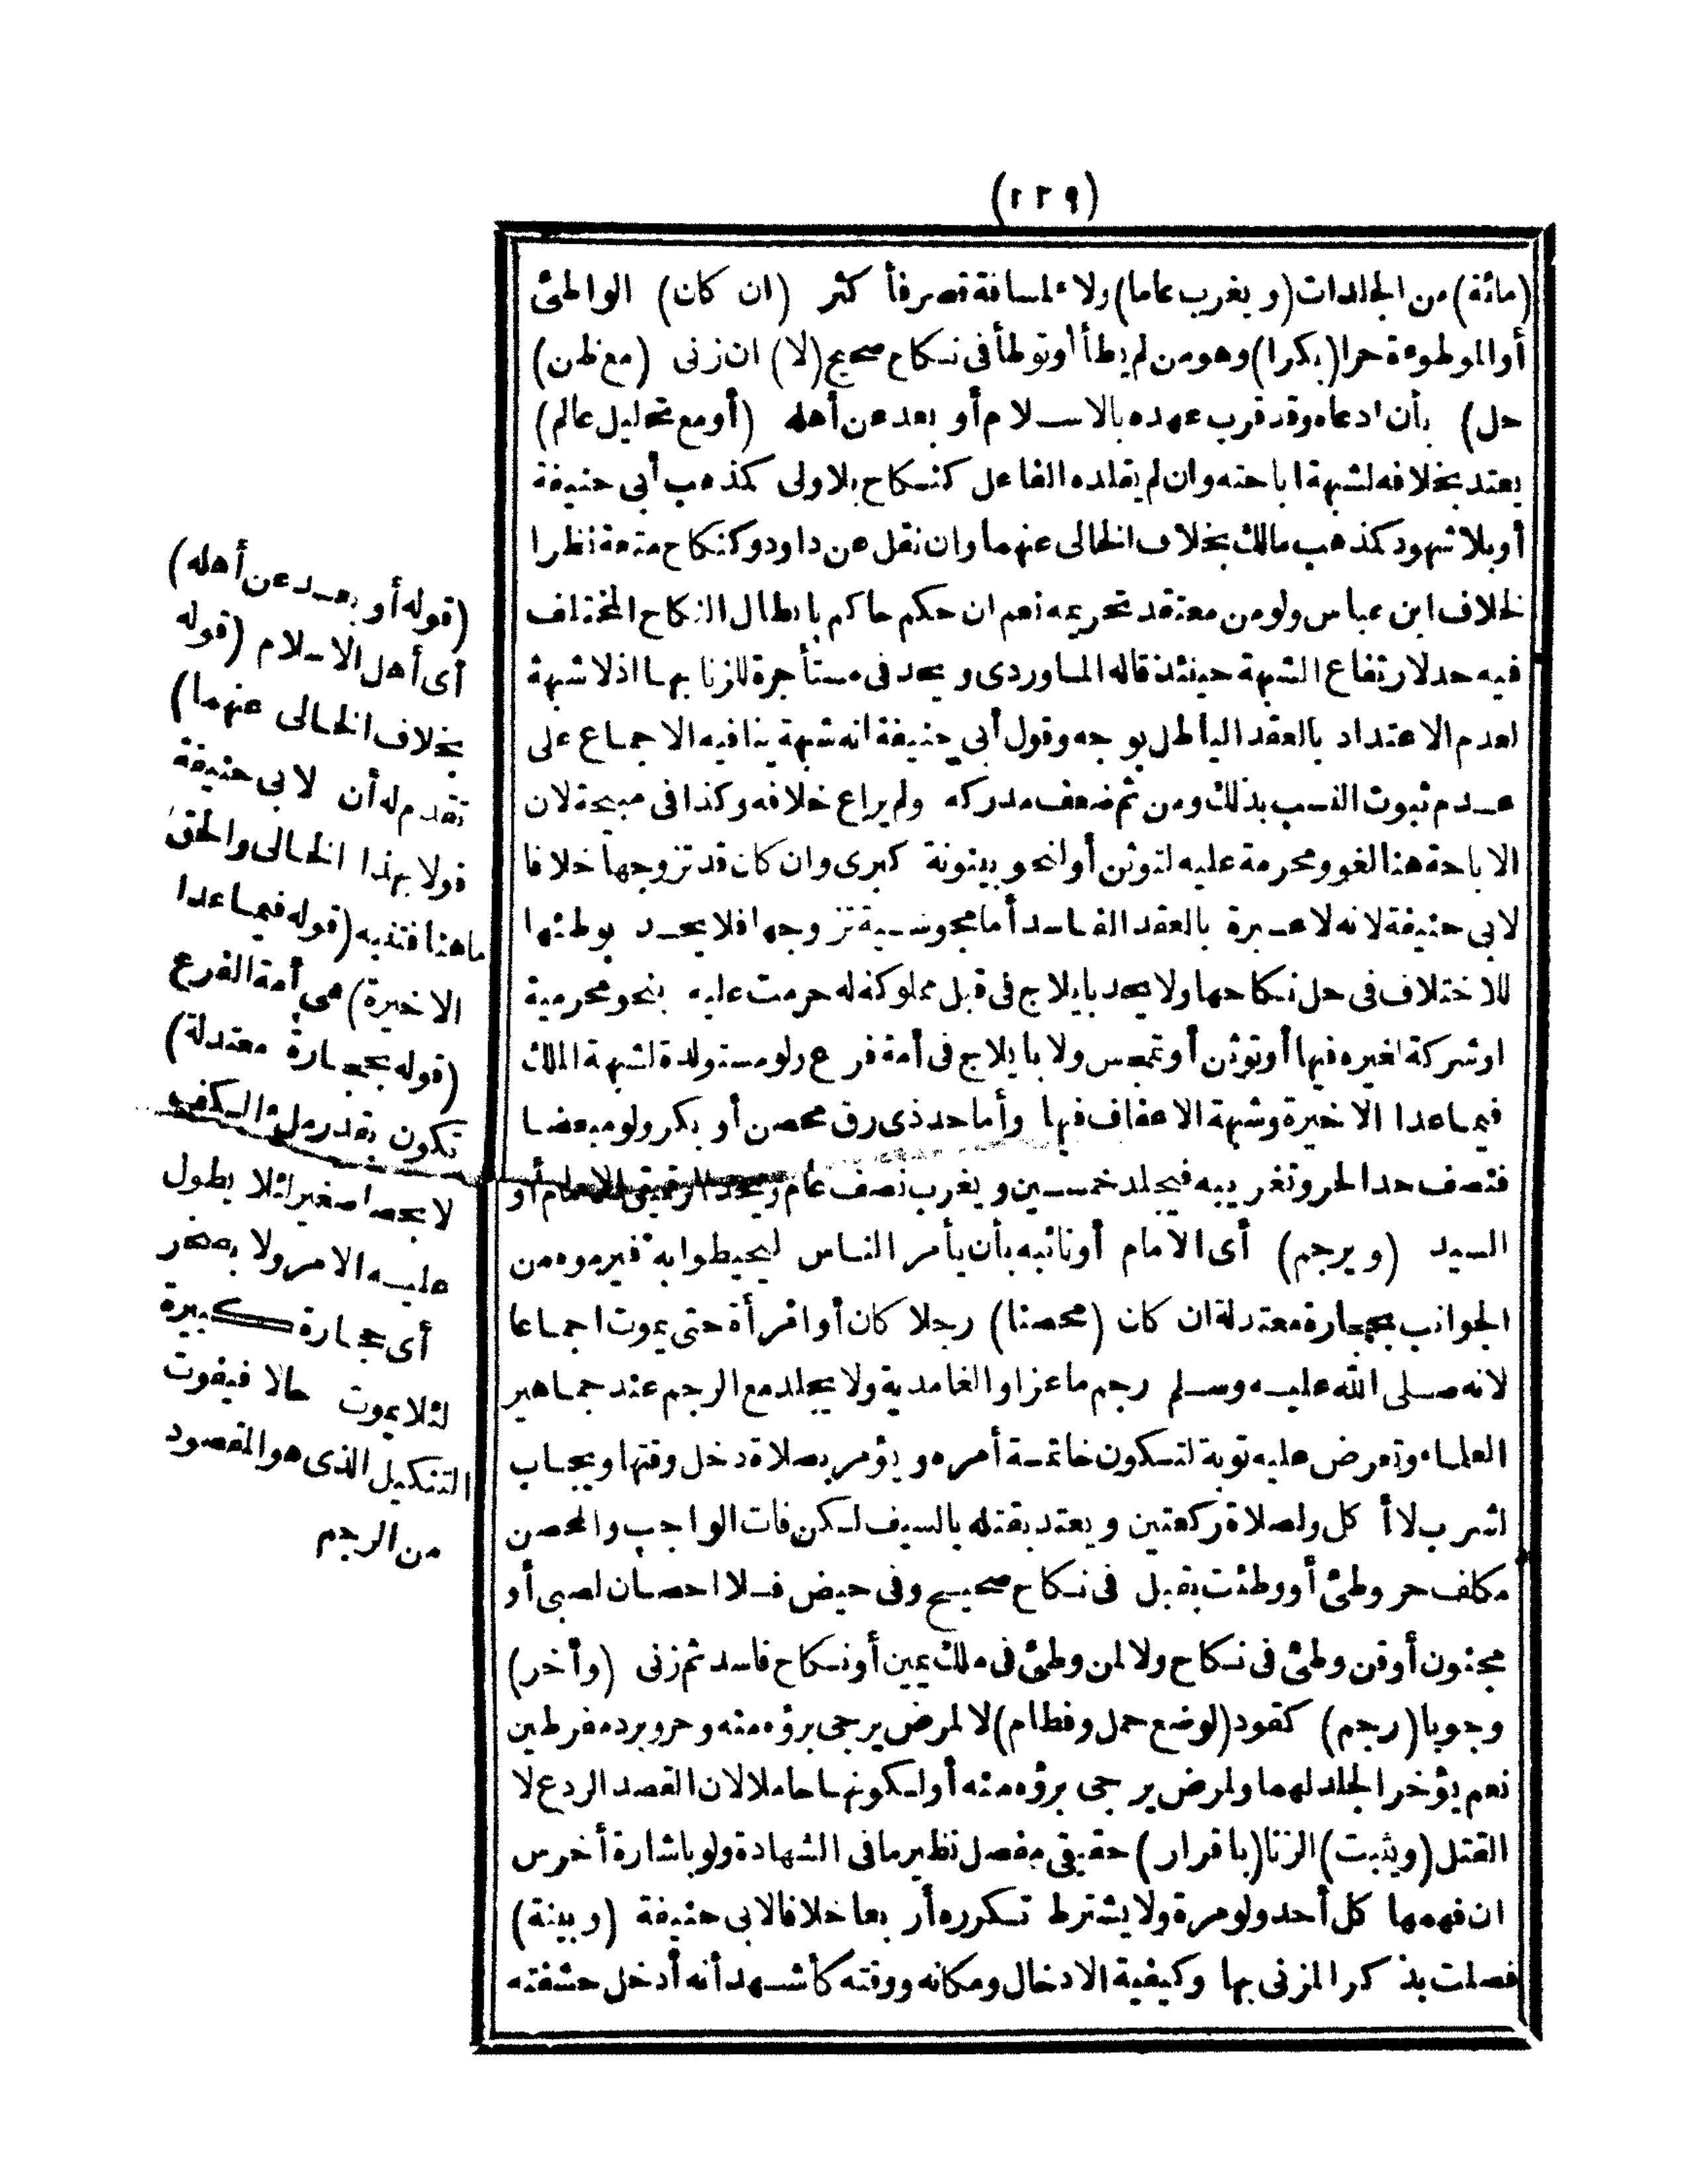 (١٣٩)
(مائة) من الجلدات (ويغرب عاما) ولاء لمسافة قصر فأ كثر (ان كان) الواطئ
أو الموطوءة حرا (بكرا) وهو من لم يطأ أوتوطأ فى نكاح صحيح (لا) ان زنى (مع ظن)
حل) بأن ادعاه وقد قرب عهده بالاسلام أو بعد عن أهله (أو مع تحليل عالم)
يعتد بخلافه لشبهة اباحته وان لم يقلده الفاعل كنكاح بلا ولى كمذهب أبى حنيفة
أو بلا شهود كمذهب مالك بخلاف الخالى عنهما وان نقل عن داود وكنكاح متعة نظرا
لخلاف ابن عباس ولو من معتقد تحريمه نعم ان حكم حاكم بابطال النكاح المختلف
فيه حد لارتفاع الشبهة حينئذ قاله الماوردى ويحد فى مستأجرة للزنا بها اذ لا شبهة
لعدم الاعتداد بالعقد الباطل بوجه وقول أبى حنيفة انه شبهة ينافيه الاجماع على
عدم ثبوت النسب بذلك ومن ثم ضعف مدركه ولم يراع خلافه وكذا فى مبيحة لان
الاباحة هنا لغو ومحرمة عليه لتوثن أو لنحو بينونة كبرى وان كان قد تزوجها خلافا
لابى حنيفة لانه لا عبرة بالعقد الفاسد أما مجوسية تزوجها فلا يحد بوطئها
للاختلاف فى حل نكاحها ولا يحد بايلاج فى قبل مملوكة له حرمت عليه بنحو محرمية
أو شركة لغيره فيها أو توثن أو تمجس ولا بايلاج فى أمة فرع ولو مستولدة لشبهة الملك
فيما عدا الاخيرة وشبهة الاعفاف فيها وأما حد ذى رق محصن أو بكر ولو مبعضا
فنصف حد الحر وتغريبه فيجلد خمسين ويغرب نصف عام ويحد الرقيق الامام أو
السيد (ويرجم) أى الامام أو نائبه بأن يأمر الناس ليحيطوا به فيرموه من
الجوانب بحجارة معتدلة ان كان (محصنا) رجلا كان أو امرأة حتى يموت اجماعا
لانه صلى الله عليه وسلم رجم ماعزا والغامدية ولا يجلد مع الرجم عند جماهير
العلماء وتعرض عليه توبة لتكون خاتمة أمره ويؤمر بصلاة دخل وقتها ويجاب
لشرب لا أ كل ولصلاة ركعتين ويعتد بقتله بالسيف لكن فات الواجب والمحصن
مكلف حر وطئ أو وطئت بقبل فى نكاح صحيح وفى حيض فلا احصان لصبى أو
مجنون أو قن وطئ فى نكاح ولا لمن وطئ فى ملك يمين أو نكاح فاسد ثم زنى (وأخر)
وجوبا (رجم) كقود (لوضع حمل وفطام) لا لمرض يرجى برؤه منه وحر وبرد مفرطين
نعم يؤخر الجلد لهما ولمرض يرجى برؤه منه أو لكونها حاملا لان القصد الردع لا
القتل (ويثبت) الزنا (باقرار) حقيقى مفصل نظير ما فى الشهادة ولو باشارة أخرس
ان فهمها كل أحد ولو مرة ولا يشترط تكرره أربعا خلافا لابى حنيفة (وبينة)
فصلت بذ كر المزنى بها وكيفية الادخال ومكانه ووقته كأشهد أنه أدخل حشفته
(قوله أو بعد عن أهله)
أى أهل الاسلام (قوله
بخلاف الخالى عنهما)
تقدم له أن لابى حنيفة
قولا بهذا الخالى والحق
ما هنا فتنبه (قوله فيما عدا
الاخيرة) هى أمة الفرع
(قوله بحجارة معتدلة)
تكون بقدر ملء الكف
لا بحصا صغير لئلا يطول
عليه الامر ولا بصخر
أى حجارة كبيرة
لئلا يموت حالا فيفوت
التنكيل الذى هو المقصود
من الرجم